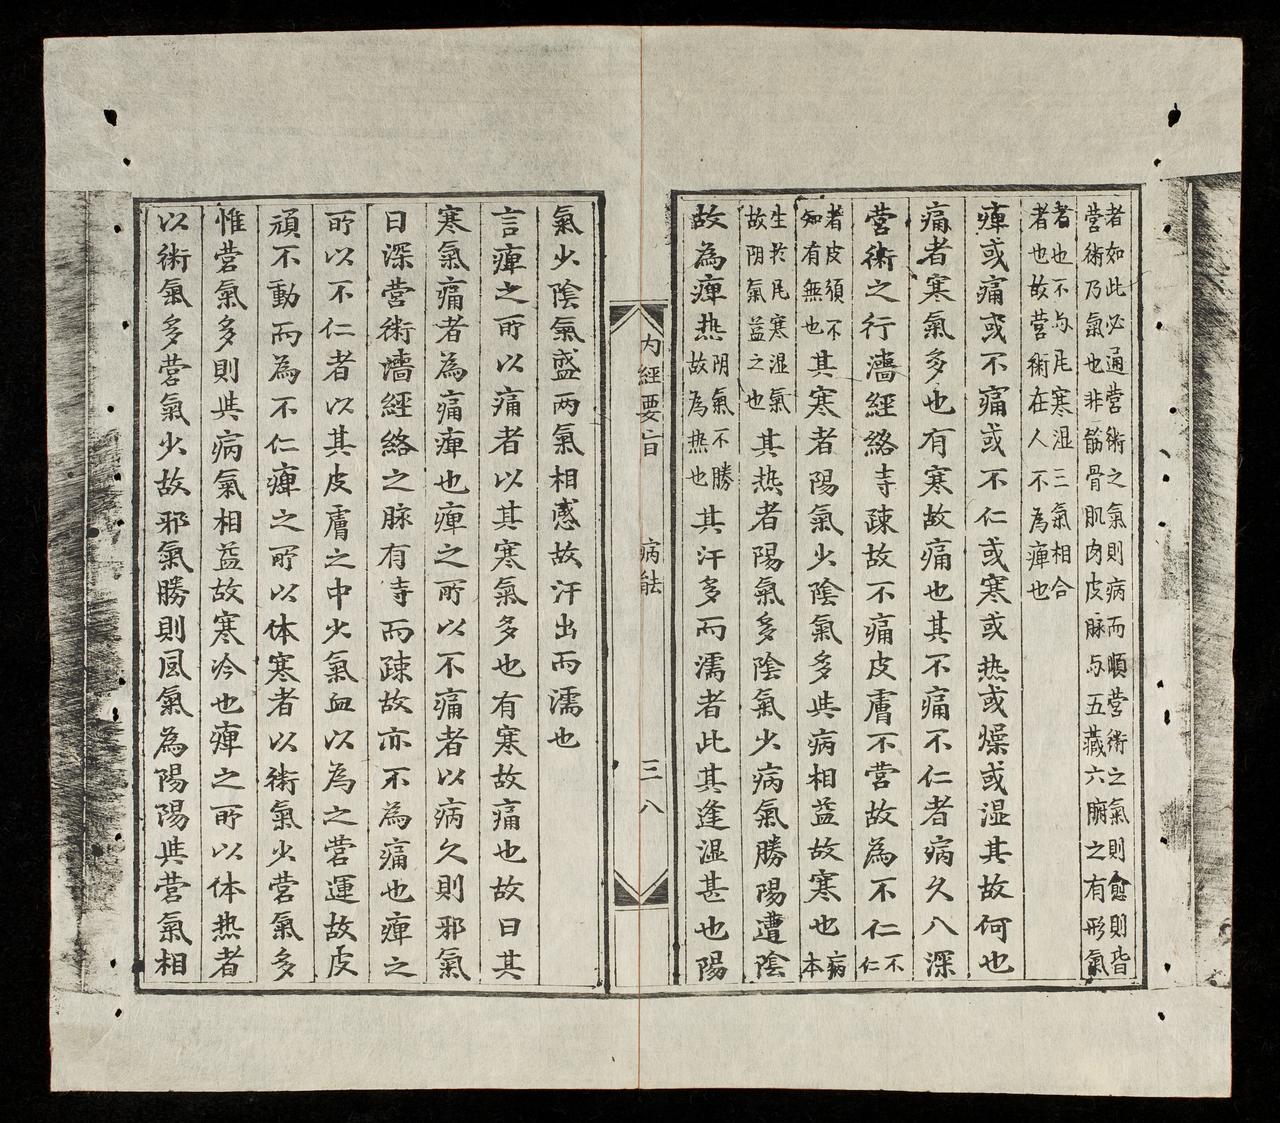 者如此必通營術之氣則病而順營術之氣則愈則皆
營術乃氣也非筋骨肌肉皮脉与五藏六腑之有形氣
者也不与凨寒湿三氣相合
者也故營術在人不為痺也
痺或痛或不痛或不仁或寒或热或燥或湿其故何也
痛者寒氣多也有寒故痛也其不痛不仁者病久入深
营術之行濇經絡寺疎故不痛皮膚不营故為不仁不仁
者皮頑不知有無也其寒者陽氣少陰氣多與病相益故寒也病本
生於凨寒湿氣故阴氣益之也其热者陽氣多陰氣少病氣勝陽遭陰
故為痺热阴氣不勝故為热也其汗多而濡者此其逢湿甚也陽
内經要旨 病能 三八
氣少陰氣盛两氣相感故汗出而濡也
言痺之所以痛者以其寒氣多也有寒故痛也故曰其
寒氣痛者為痛痺也痺之所以不痛者以病久則邪氣
日深营術濇經絡之脉有寺而疎故亦不為痛也痺之
所以不仁者以其皮膚之中少氣血以為之营運故皮
頑不動而為不仁痺之所以体寒者以術氣少营氣多
惟营氣多則與病氣相益故寒冷也痺之所以体热者
以術氣多营氣少故邪氣勝則凨氣為陽陽與营氣相